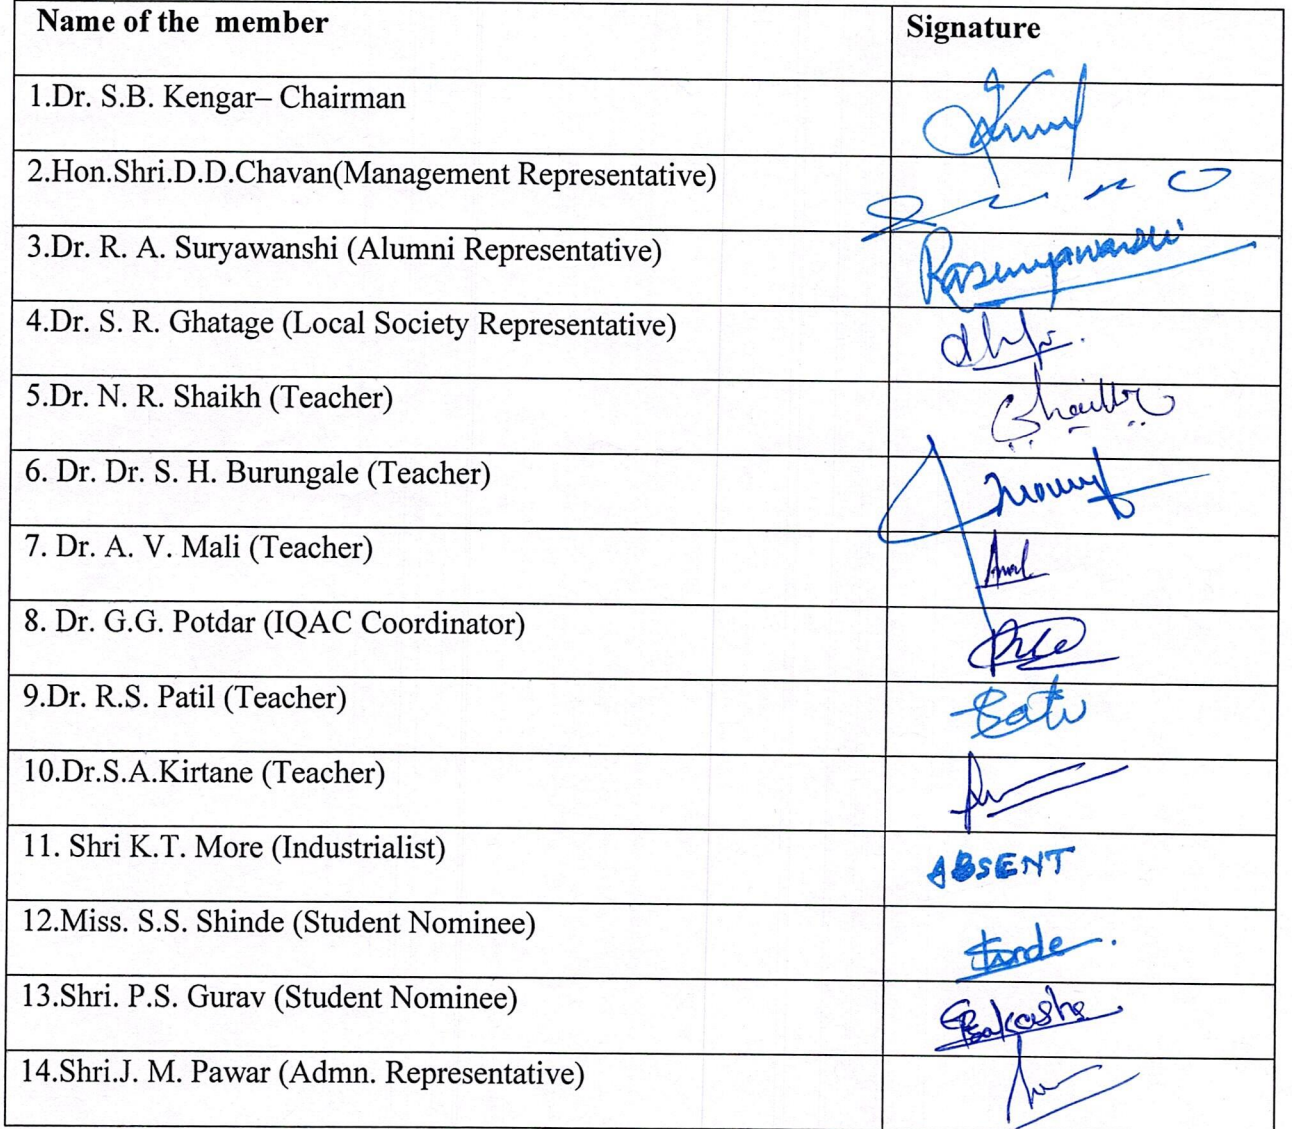 Name of the member Signature
1.Dr. S.B. Kengar– Chairman
2.Hon.Shri.D.D.Chavan(Management Representative)
3.Dr. R. A. Suryawanshi (Alumni Representative) Rasuryawanshi
4.Dr. S. R. Ghatage (Local Society Representative)
5.Dr. N. R. Shaikh (Teacher)
6. Dr. Dr. S. H. Burungale (Teacher)
7. Dr. A. V. Mali (Teacher)
8. Dr. G.G. Potdar (IQAC Coordinator)
9.Dr. R.S. Patil (Teacher)
10.Dr.S.A.Kirtane (Teacher)
11. Shri K.T. More (Industrialist) ABSENT
12.Miss. S.S. Shinde (Student Nominee)
13.Shri. P.S. Gurav (Student Nominee)
14.Shri.J. M. Pawar (Admn. Representative)